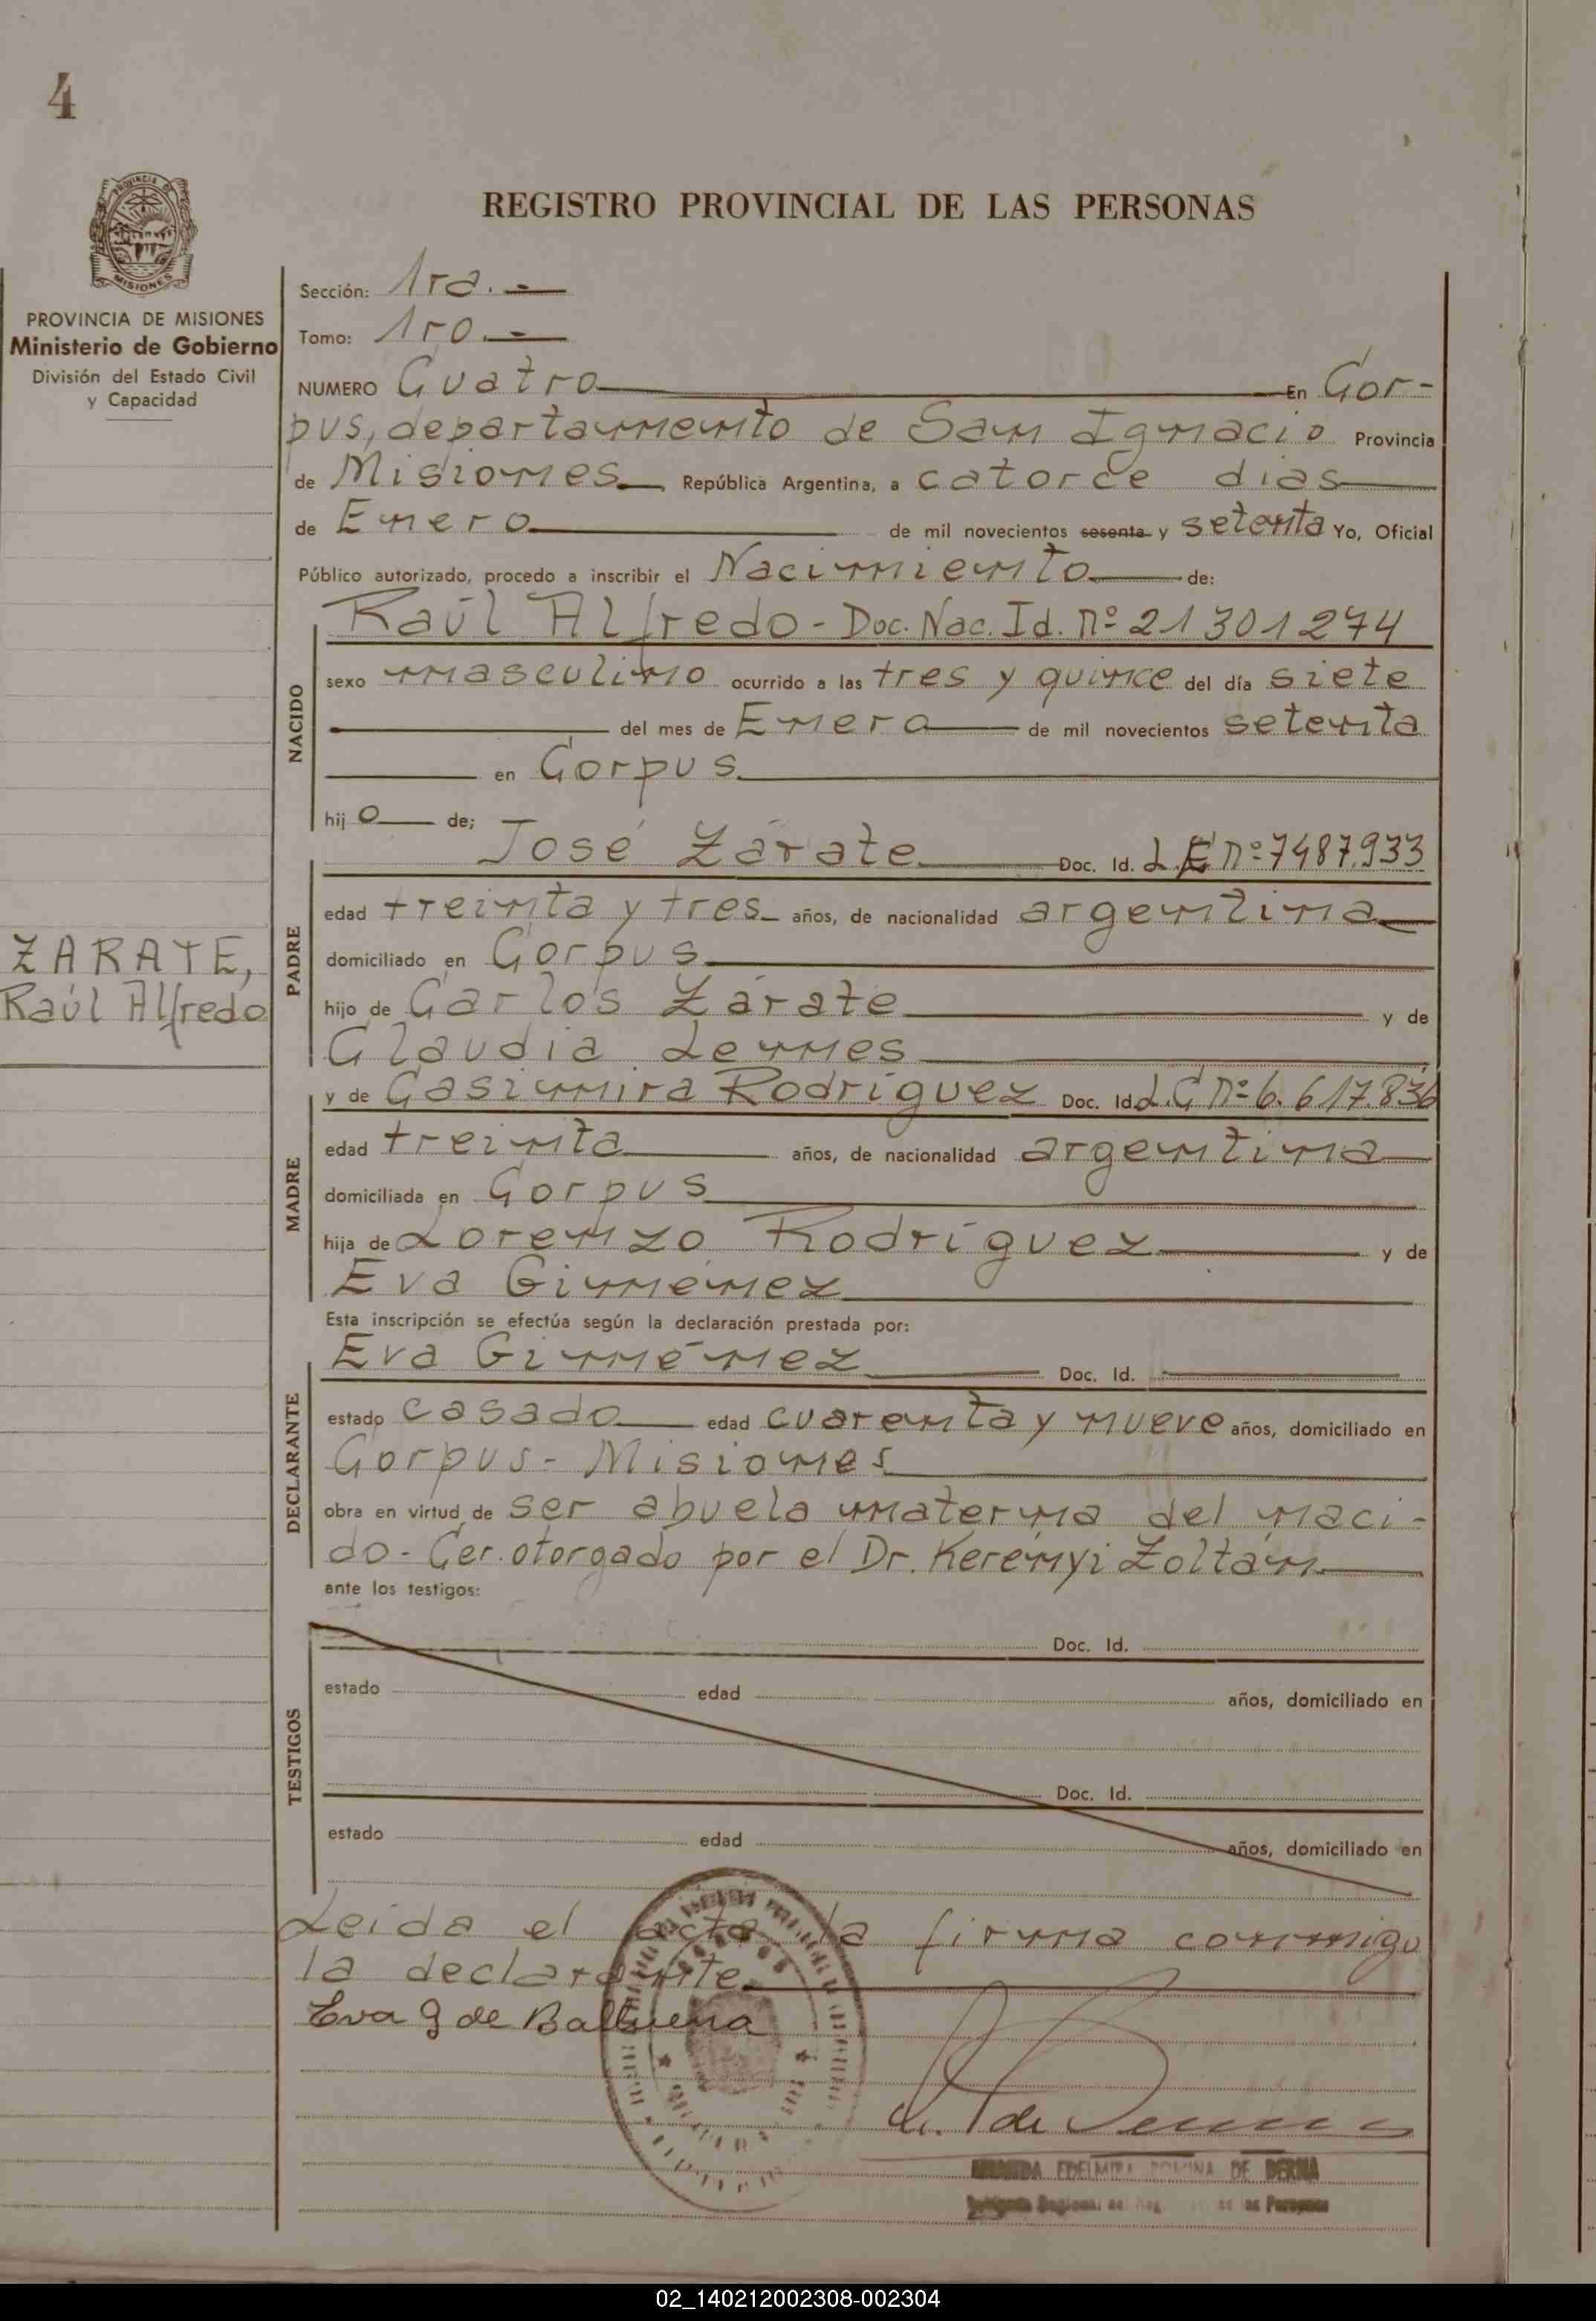 4
PROVINCIA DE
MISIONES
PROVINCIA DE MISIONES
Ministerio de Gobierno
División del Estado Civil
y Capacidad
ZARATE,
Raúl Alfredo
REGISTRO PROVINCIAL DE LAS PERSONAS
Sección: 1ra.-
Tomo: 1ro.-
NUMERO Cuatro En Cor-
pus, departamento de San Ignacio Provincia
de Misiones República Argentina, a catorce dias
de Enero de mil novecientos sesenta y setenta Yo, Oficial
Público autorizado, procedo a inscribir el Nacimiento de:
NACIDO
Raúl Alfredo - Doc. Nac. Id. Nº 21301274
sexo masculino ocurrido a las tres y quince del día siete
del mes de Enero de mil novecientos setenta
en Corpus
hijo de;
PADRE
José Zárate Doc. Id. L.E Nº 7487.933
edad treinta y tres años, de nacionalidad argentina
domiciliado en Corpus
hijo de Carlos Zárate y de
Claudia Lemes
MADRE
y de Casimira Rodríguez Doc. Id. L.C Nº 6.617.836
edad treinta años, de nacionalidad argentina
domiciliada en Corpus
hija de Lorenzo Rodríguez y de
Eva Giménez
Esta inscripción se efectúa según la declaración prestada por:
DECLARANTE
Eva Giménez Doc. Id.
estado casado edad cuarenta y nueve años, domiciliado en
Corpus - Misiones
obra en virtud de ser abuela materna del naci-
do - Cer. otorgado por el Dr. Kerényi Zoltán
ante los testigos:
TESTIGOS
Doc. Id.
estado edad años, domiciliado en
Doc. Id.
estado edad años, domiciliado en
Leida el acta la firma conmigo
la declarante
Eva G de Balbuena
EDELMIRA ROMINA DE BERNA
Regional de las Personas
02_140212002308-002304